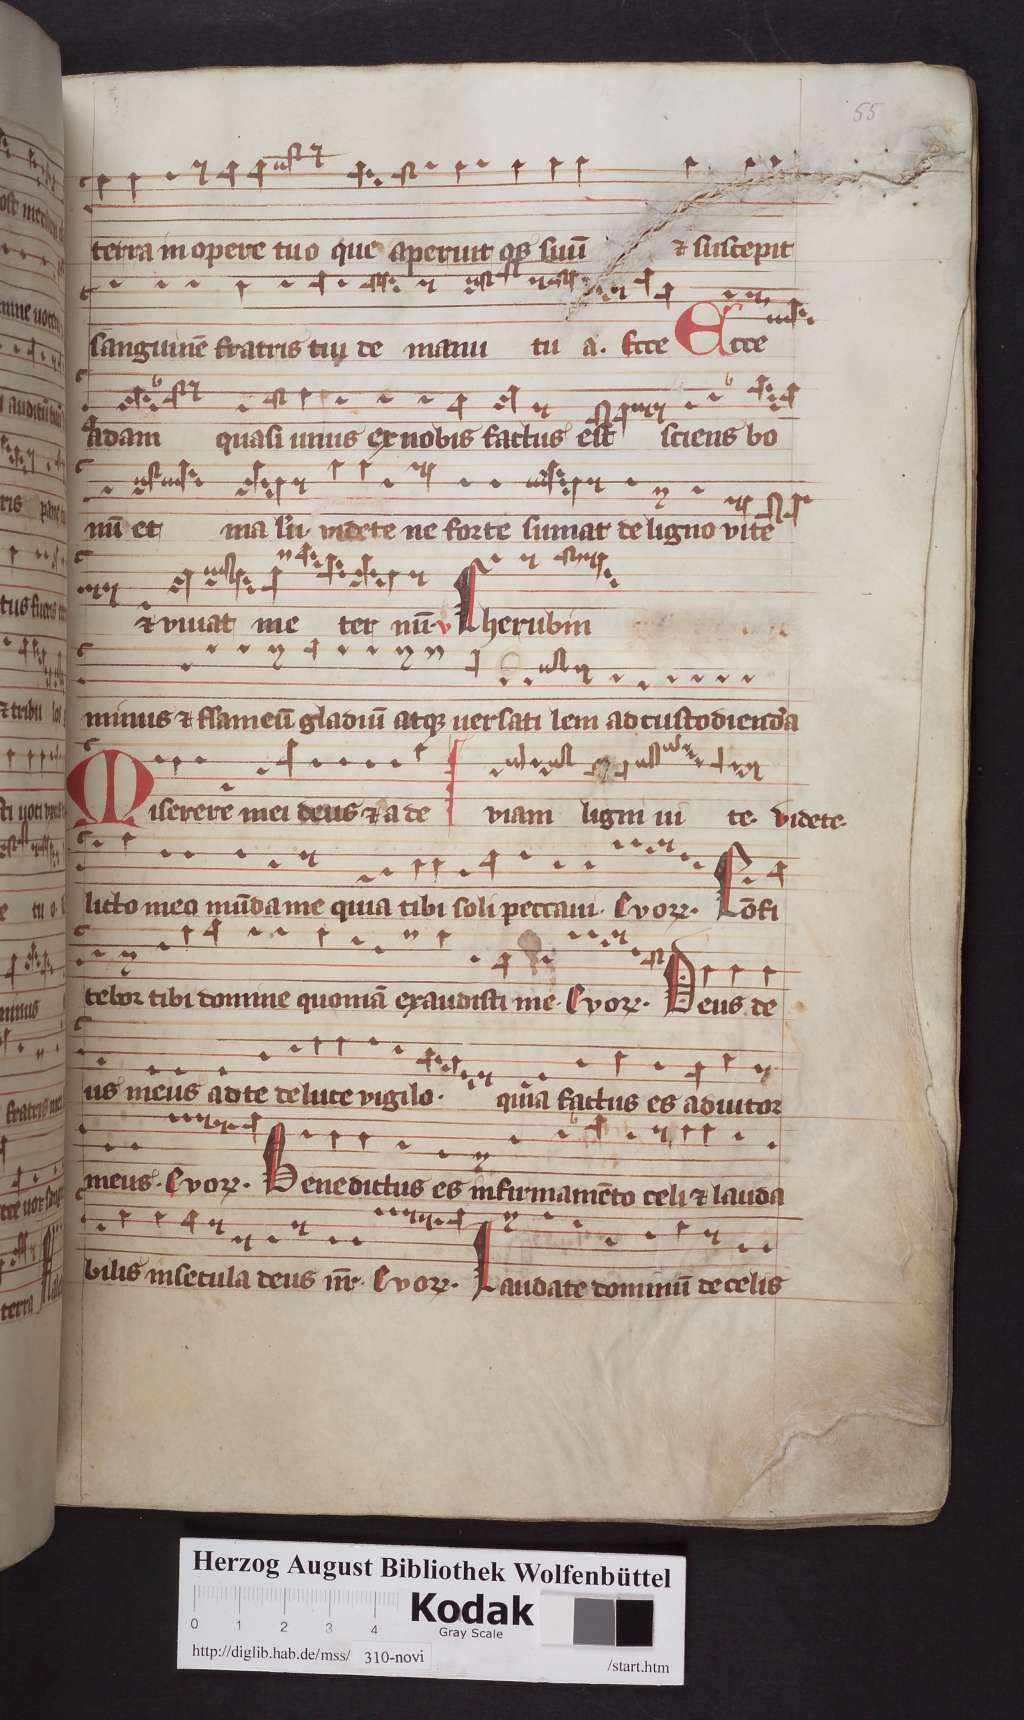 55
terra in opere tuo que aperuit os suū ⁊ suscepit
sanguinē fratris tui de manu tu a. Ecce Ecce
adam quasi unus ex nobis factus est sciens bo
nū et ma lū videte ne forte sumat de ligno vite
⁊ vivat me ter nū v Cherubin
minus ⁊ flameū gladiū atqꝫ versati lem ad custodienda
Miserere mei deus ⁊ a de viam ligni vi te. videte.
licto meo mūda me quia tibi soli peccavi. Evovꝝ. Cōfi
tebor tibi domine quoniā exaudisti me. Evovꝝ. Deus de
us meus ad te de luce vigilo. quia factus es adiutor
meus. Evovꝝ. Benedictus es in firmamēto celi ⁊ lauda
bilis in secula deus nr̄. Evovꝝ. Laudate dominū de celis
Herzog August Bibliothek Wolfenbüttel
0 1 2 3 4
Kodak
Gray Scale
http://diglib.hab.de/mss/ 310-novi /start.htm